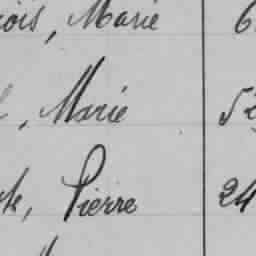 ois, Marie 6
, Marie
, Pierre 24